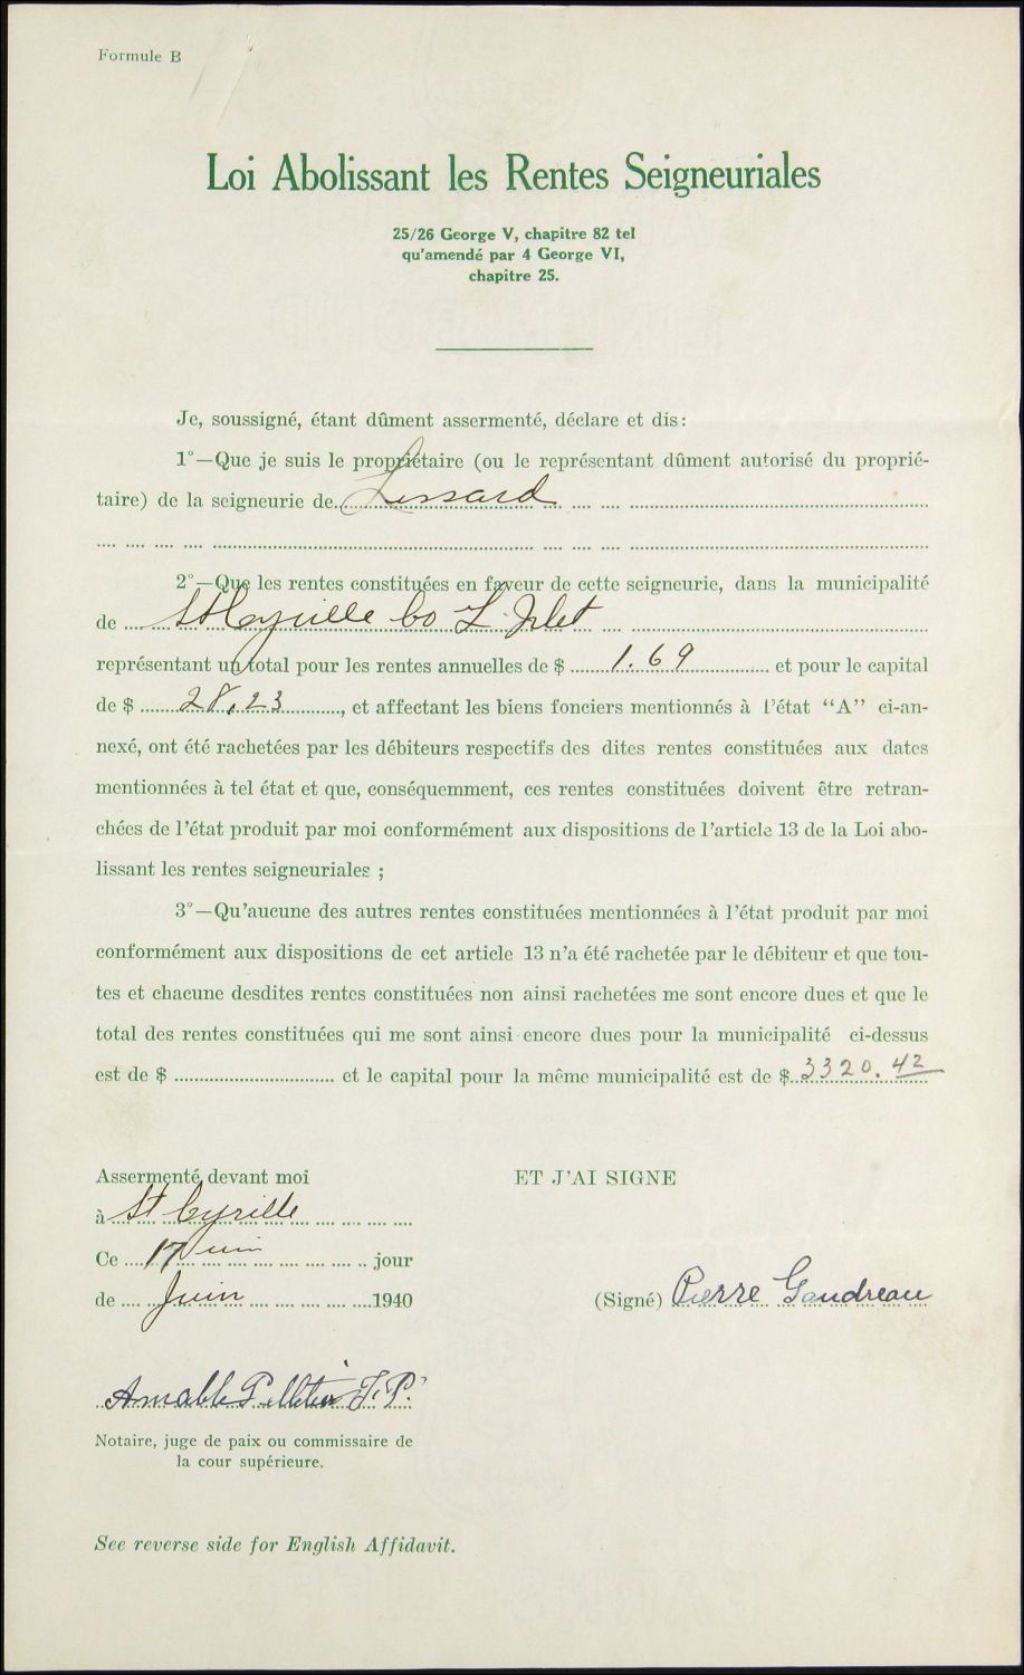 Formule B
Loi Abolissant les Rentes Seigneuriales
25/26 George V, chapitre 82 tel
qu'amendé par 4 George VI,
chapitre 25.
Je, soussigné, étant dûment assermenté, déclare et dis:
1°—Que je suis le propriétaire (ou le représentant dûment autorisé du proprié-
taire) de la seigneurie de Lessard
2°—Que les rentes constituées en faveur de cette seigneurie, dans la municipalité
de St Cyrille Co L'Islet
représentant un total pour les rentes annuelles de $ 1.69 et pour le capital
de $ 28,23, et affectant les biens fonciers mentionnés à l'état "A" ci-an-
nexé, ont été rachetées par les débiteurs respectifs des dites rentes constituées aux dates
mentionnées à tel état et que, conséquemment, ces rentes constituées doivent être retran-
chées de l'état produit par moi conformément aux dispositions de l'article 13 de la Loi abo-
lissant les rentes seigneuriales ;
3°—Qu'aucune des autres rentes constituées mentionnées à l'état produit par moi
conformément aux dispositions de cet article 13 n'a été rachetée par le débiteur et que tou-
tes et chacune desdites rentes constituées non ainsi rachetées me sont encore dues et que le
total des rentes constituées qui me sont ainsi encore dues pour la municipalité ci-dessus
est de $ et le capital pour la même municipalité est de $ 3320.42
Assermenté devant moi
ET J'AI SIGNE
à St Cyrille
Ce 17 jour
de Juin 1940
(Signé) Pierre Gaudreau
Amable Pelletier J.P.
Notaire, juge de paix ou commissaire de
la cour supérieure.
See reverse side for English Affidavit.